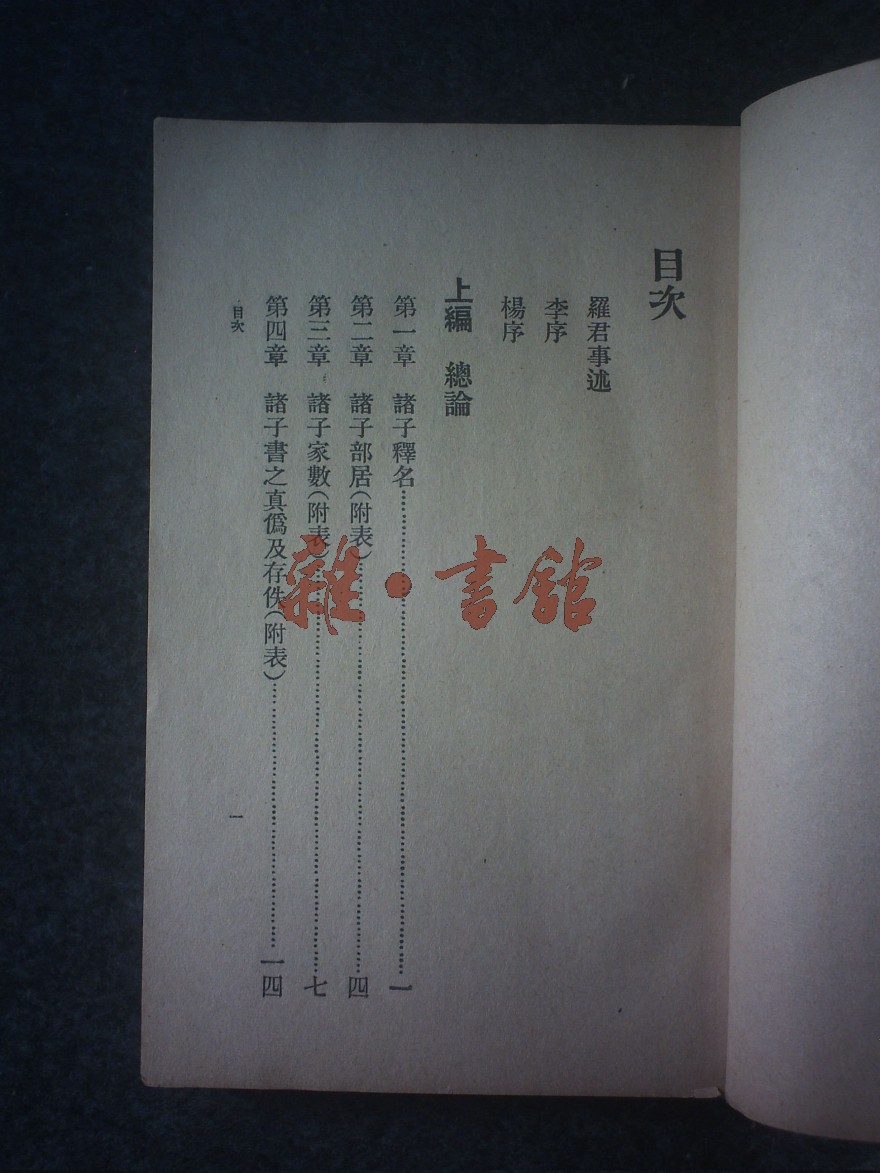 目次
羅君事述
李序
楊序
上編　總論
第一章　諸子釋名……一
第二章　諸子部居(附表)……四
第三章　諸子家數(附表)……七
第四章　諸子書之真僞及存佚(附表)……一四
目次　一
雜·書館